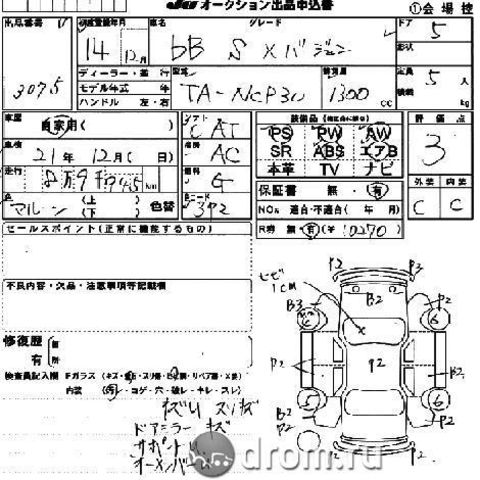 JU オークション出品申込書
①会場控
出品番号
3075
初度登録年月
14年 12月
車名 グレード
bB S Xバージョン
ドア 5
形状
ディーラー・並行
モデル年式 年
ハンドル 左・右
型式
TA-NCP30
排気量
1300 cc
定員 5人
積載 kg
車歴 自家用( )
シフト CAT
装備品
PS PW AW
SR ABS エアB
本革 TV ナビ
評価点
3
車検 21年 12月( 日)
冷房 AC
走行 km
燃料 G
外装 内装
C C
保証書 無・有
色 マルーン (上) (下) 色替
392
NO. 適合・不適合( 年 月)
R券 無・有(¥10270)
セールスポイント(正常に機能するもの)
不良内容・欠品・注意事項等記載欄
修復歴
有
検査員記入欄 Fガラス
内装 (汚レ・コゲ・穴・破レ・キレ・スレ)
ドアミラー キズ
サポート
ヒビ
1cm
P2 P3
B2
B3 P2
6 6
X
P2 P2 B2
5 6
B2 P2
P2
P2 P2
drom.ru